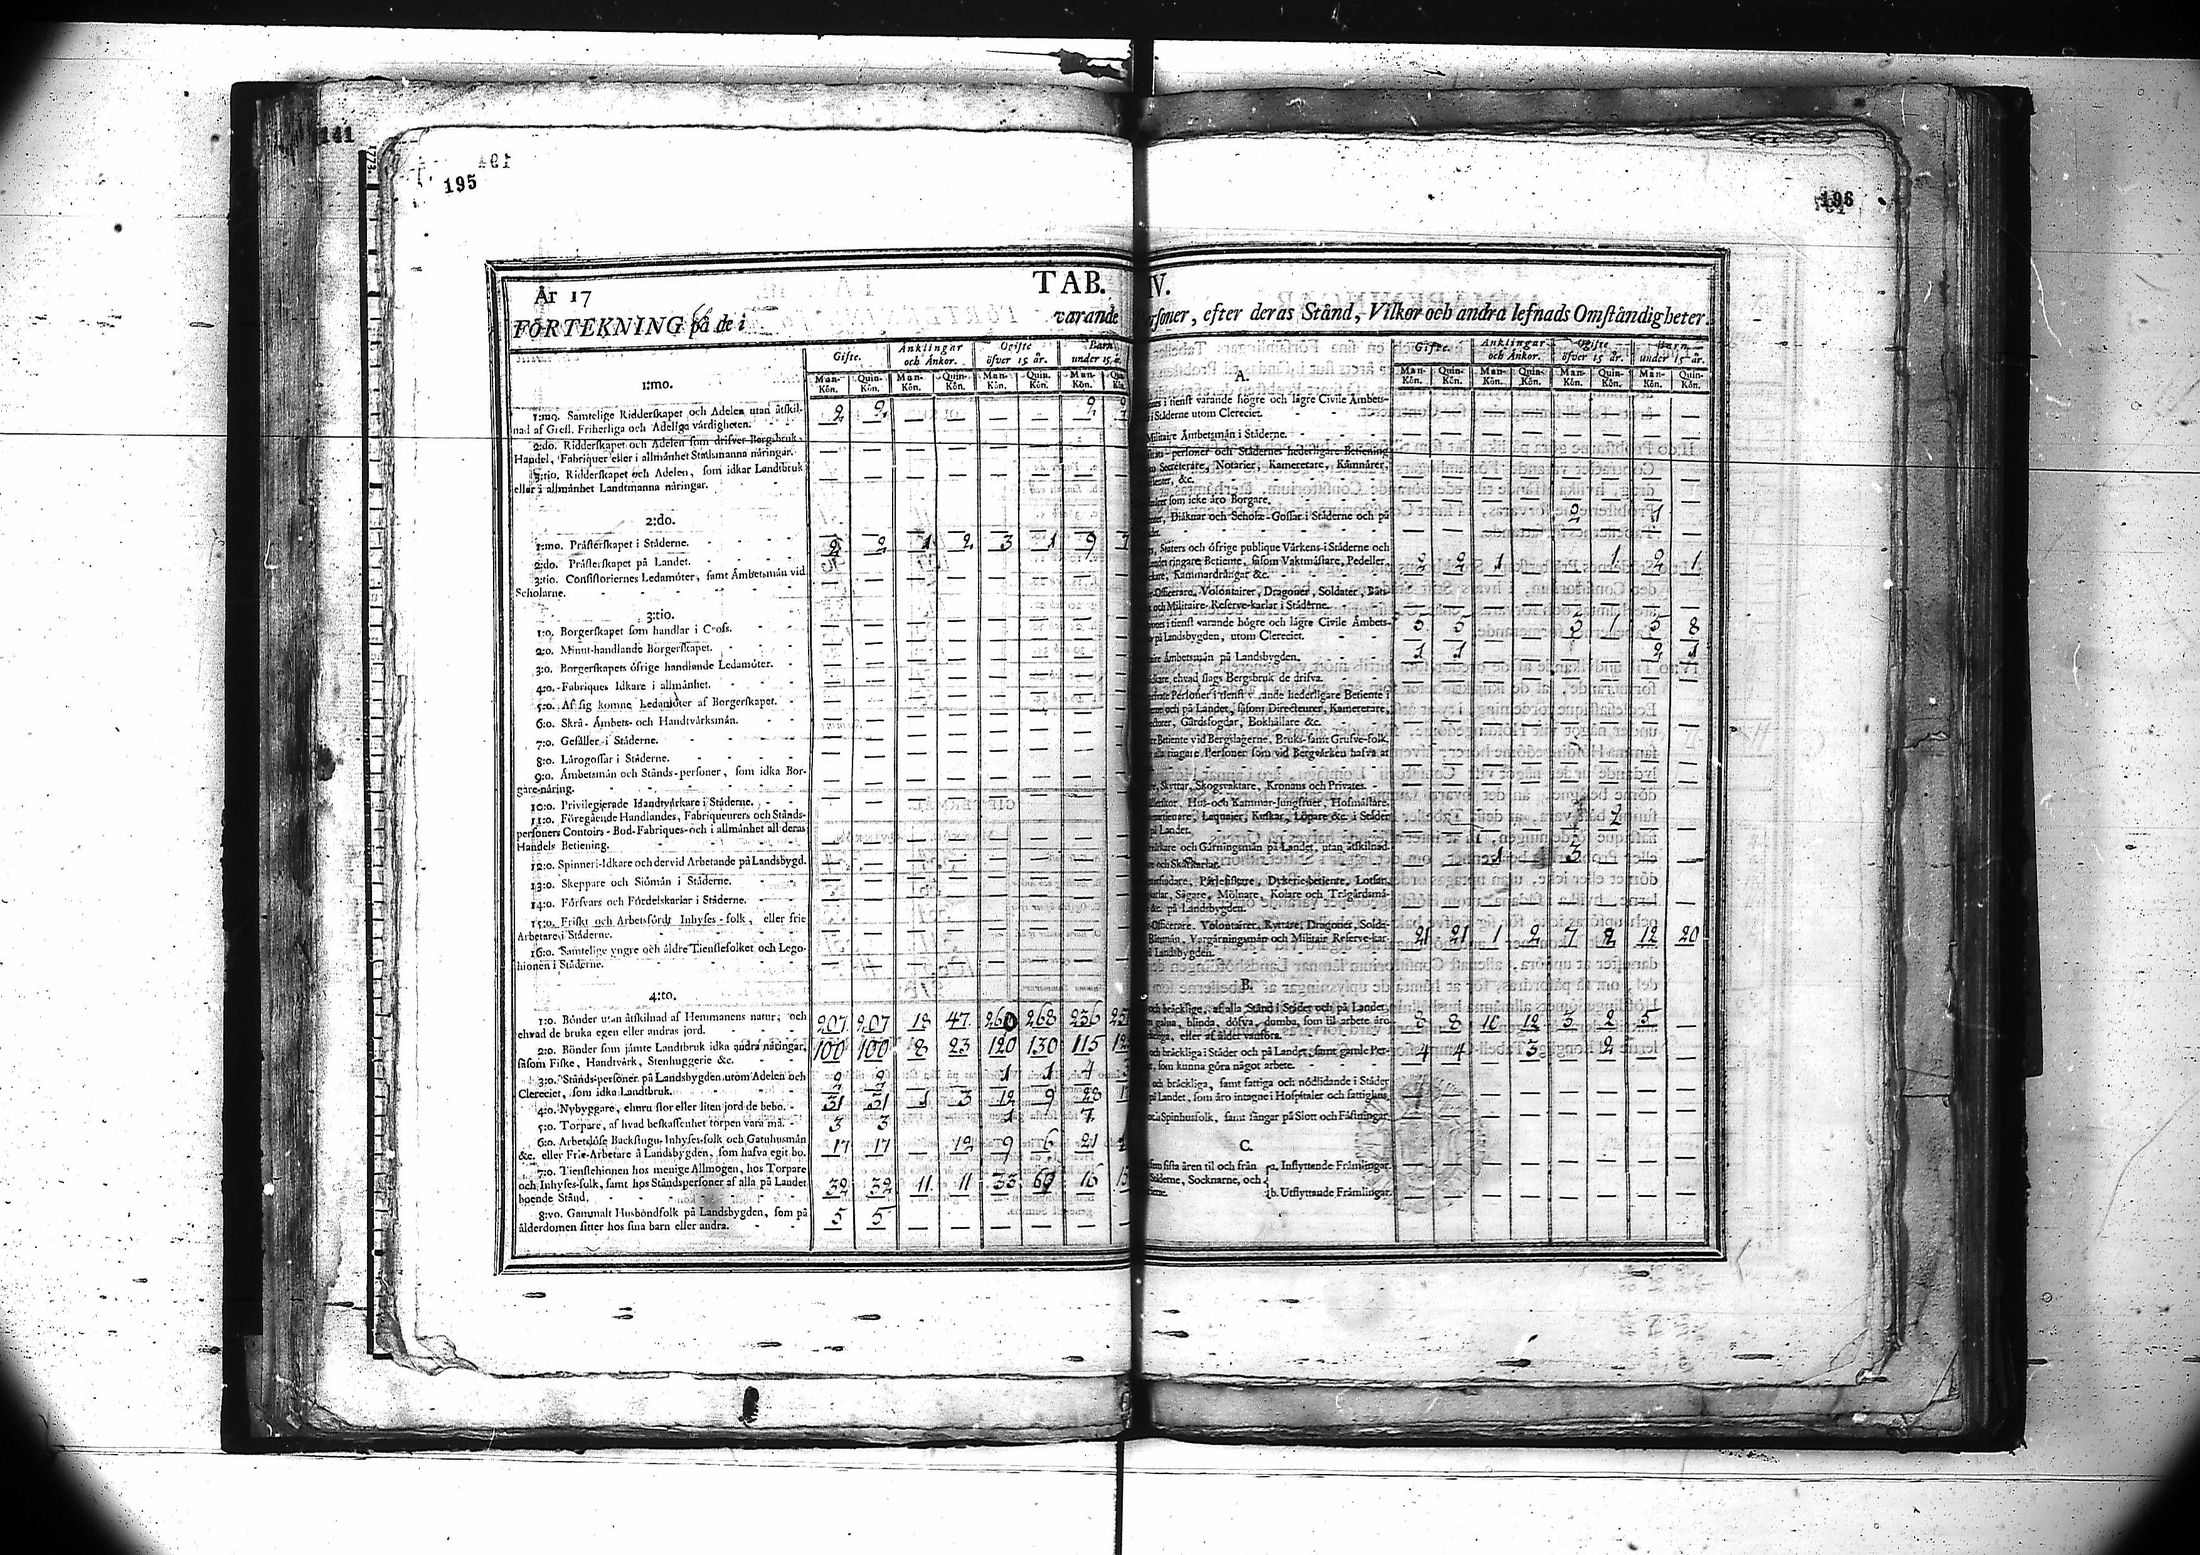 141
195
196
År 17
TAB. IV.
FÖRTEKNING på de i varande Personer, efter deras Stånd, Vilkor och andra lefnads Omständigheter.
Gifte. Änklingar och Änkor. Ogifte öfver 15 år. Barn under 15 å.
Man-Kön. Quin-Kön. Man-Kön. Quin-Kön. Man-Kön. Quin-Kön. Man-Kön.
1:mo.
1:mo. Samtelige Ridderskapet och Adelen utan åtskil- 2 2 — — — — 2
nad af Grefl. Friherliga och Adeliga värdigheten.
2:do. Ridderskapet och Adelen som drifver Bergsbruk,
Handel, Fabriquer eller i allmänhet Stadsmanna näringar. — — — — — — —
3:tio. Ridderskapet och Adelen, som idkar Landtbruk
eller i allmänhet Landtmanna näringar. — — — — — — —
2:do.
1:mo. Prästerskapet i Städerne. — — — — — — —
2 2 1 2 3 1 9 7
2:do. Prästerskapet på Landet.
3:tio. Consistoriernes Ledamöter, samt Ämbetsmän vid
Scholarne.
3:tio.
1:o. Borgerskapet som handlar i Gross.
2:o. Minut-handlande Borgerskapet.
3:o. Borgerskapets öfrige handlande Ledamöter.
4:o. Fabriques Idkare i allmänhet.
5:o. Af sig komne Ledamöter af Borgerskapet.
6:o. Skrå- Ämbets- och Handtvärksmän.
7:o. Gesäller i Städerne.
8:o. Lärogossar i Städerne.
9:o. Ämbetsmän och Stånds-personer, som idka Bor-
gare-näring.
10:o. Privilegierade Handtvärkare i Städerne.
11:o. Föregående Handlandes, Fabriqueurers och Stånds-
personers Contoirs- Bod-Fabriques- och i allmänhet all deras
Handels Betiening.
12:o. Spinneri-Idkare och dervid Arbetande på Landsbygd.
13:o. Skeppare och Siömän i Städerne.
14:o. Försvars och Fördelskarlar i Städerne.
15:o. Friskt och Arbetsfördt Inhyses-folk, eller frie
Arbetare i Städerne.
16:o. Samtelige yngre och äldre Tienstefolket och Lego-
hionen i Städerne.
4:to.
1:o. Bönder utan åtskilnad af Hemmanens natur; och 207 207 18 47 260 268 236
ehvad de bruka egen eller andras jord.
2:o. Bönder som jämte Landtbruk idka andra näringar, 100 100 8 23 120 130 115
såsom Fiske, Handtvärk, Stenhuggerie &c.
3:o. Stånds-personer på Landsbygden utom Adelen och 2 2 — — 1 1 4
Clereciet, som idka Landtbruk.
4:o. Nybyggare, ehuru stor eller liten jord de bebo. 31 31 1 3 12 9 28
5:o. Torpare, af hvad beskaffenhet torpen vara må. 3 3 — — 1 — 7
6:o. Arbetslöse Backstugu- Inhyses-folk och Gatuhusmän 17 17 — 12 9 6 21
&c. eller Frie-Arbetare å Landsbygden, som hafva eget bo.
7:o. Tienstehionen hos menige Allmogen, hos Torpare
och Inhyses-folk, samt hos Ståndspersoner af alla på Landet 32 32 11 11 33 69 16
boende Stånd.
8:vo. Gammalt Husbondfolk på Landsbygden, som på 5 5 — — — — —
ålderdomen sitter hos sina barn eller andra.
Gifte. Änklingar och Änkor. Ogifte öfver 15 år. Barn under 15 år.
Man-Kön. Quin-Kön. Man-Kön. Quin-Kön. Man-Kön. Quin-Kön. Man-Kön. Quin-Kön.
A.
i tienst varande högre och lägre Civile Ämbets-
i Städerne utom Clereciet. — — — — — — — —
Militaire Ämbetsmän i Städerne. — — — — — — — —
personer och Städernes hederligare Betiening
Secreterare, Notarier, Kamererare, Kämnärer,
&c.
som icke äro Borgare.
Diäknar och Schole-Gossar i Städerne och på — — — — 2 — 1 —
Slotters och öfrige publique Värkens i Städerne och
ringare Betiente, såsom Vaktmästare, Pedeller, 2 2 1 — — 1 2 1
Kammardrängar &c.
Officerare, Volontairer, Dragoner, Soldater, Båts-
och Militaire-Reserve-karlar i Städerne. — — — — — — — —
i tienst varande högre och lägre Civile Ämbets- 5 5 — — 3 1 5 8
på Landsbygden, utom Clereciet.
Ämbetsmän på Landsbygden. 1 1 — — — — 2 1
ehvad slags Bergsbruk de drifva.
Personer i tienst varande hederligare Betiente i
och på Landet, såsom Directeurer, Kamererare,
Gårdsfogdar, Bokhållare &c.
Betiente vid Bergslagerne, Bruks- samt Grufve-folk,
alla ringare Personer som vid Bergvärken hafva at
Skyttar, Skogsvaktare, Kronans och Privates.
Hus- och Kammar-Jungfruer, Hofmästare,
Lequaier, Kuskar, Löpare &c. i Städer
på Landet.
och Gärningsmän på Landet, utan åtskilnad — — 1 — 3 — — —
och Skärkarlar.
Pärle-fiskare, Dykerie-betiente, Lotsar,
Sågare, Mölnare, Kolare och Trägårdsmä-
&c. på Landsbygden.
Officerare, Volontairer, Ryttare, Dragoner, Solda-
Båtsmän, Vargeringsmän och Militair Reserve-kar- 21 21 1 2 7 2 12 20
Landsbygden.
B.
och bräcklige, af alla Stånd i Städer och på Landet,
galna, blinda, döfva, dumba, som til arbete äro 8 8 10 12 3 2 5 —
eller af ålder vanföra.
och bräckliga i Städer och på Landet, samt gamle Per- 4 4 — 3 — 2 — —
som kunna göra något arbete.
och bräckliga, samt fattiga och nödlidande i Städer
på Landet, som äro intagne i Hospitaler och fattighus.
Spinhusfolk, samt fångar på Slott och Fästningar.
C.
sista åren til och från a. Inflyttende Främlingar.
Städerne, Socknarne, och
b. Utflyttande Främlingar.